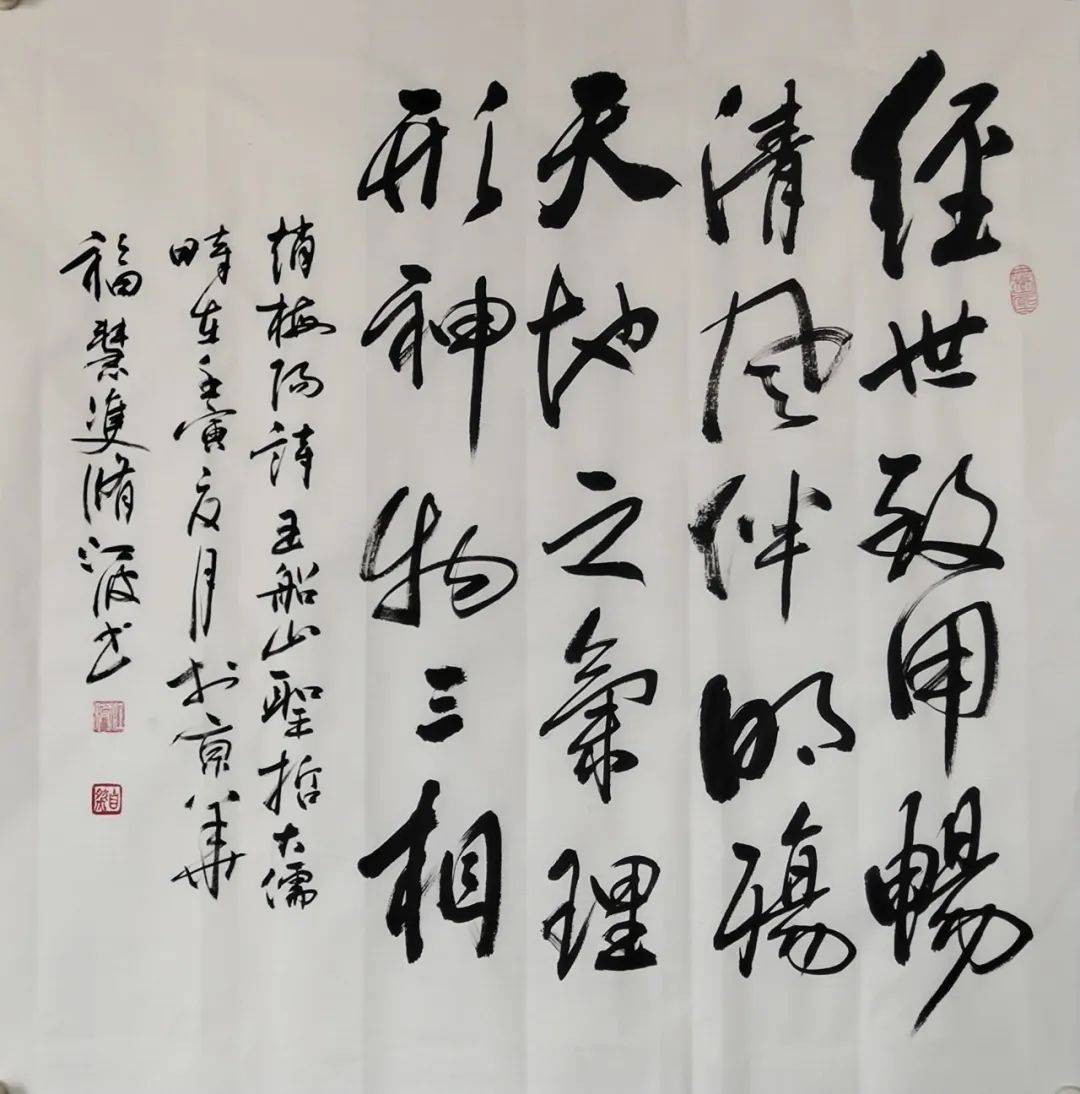 經世致用暢
清風伴明殤
天地之氣理
形神物三相
趙梅陽詩王船山聖哲大儒
時在壬寅夏月於京華
福慧雙脩江波書